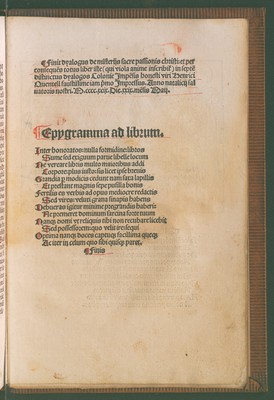 ¶Finit dyalogus de misterijs sacre passionis christi: et per
consequẽs totus liber iste (qui viola anime inscribit) in septẽ
distinctus dyalogos Colonie Impẽsis honesti viri Henrici
Quentell faustissime iam p̃mo Impressus. Anno natalicij sal
uatoris nostri. M.cccc.xcix. Die xxix. mẽsis Maij.
¶Epygramma ad librum.
Inter honoratos: nulla formidine libros
Sume sed exiguum parue libelle locum
Ne vereare libris multo maioribus addi
Corpore plus iusto: sis licet ipse breuis
Grandia modicis cedunt saxa lapillis
Et prestant magnis sepe pusilla bonis
Fertilis ex verbis ad opus mediocre redactis
Sed vires veluti grana sinapis habens
Debueras igitur minime pregrandis haberi
Ne premeret dominum sarcina forte tuum
Nanq̃ domi vel reliquis tibi non recubare licebit
Sed possessorem quo velit ire sequi
Optima nanq̃ doces captuq̃ facillima queq̃
Ac iter in celum quo sibi quisq̃ paret.
¶Finis